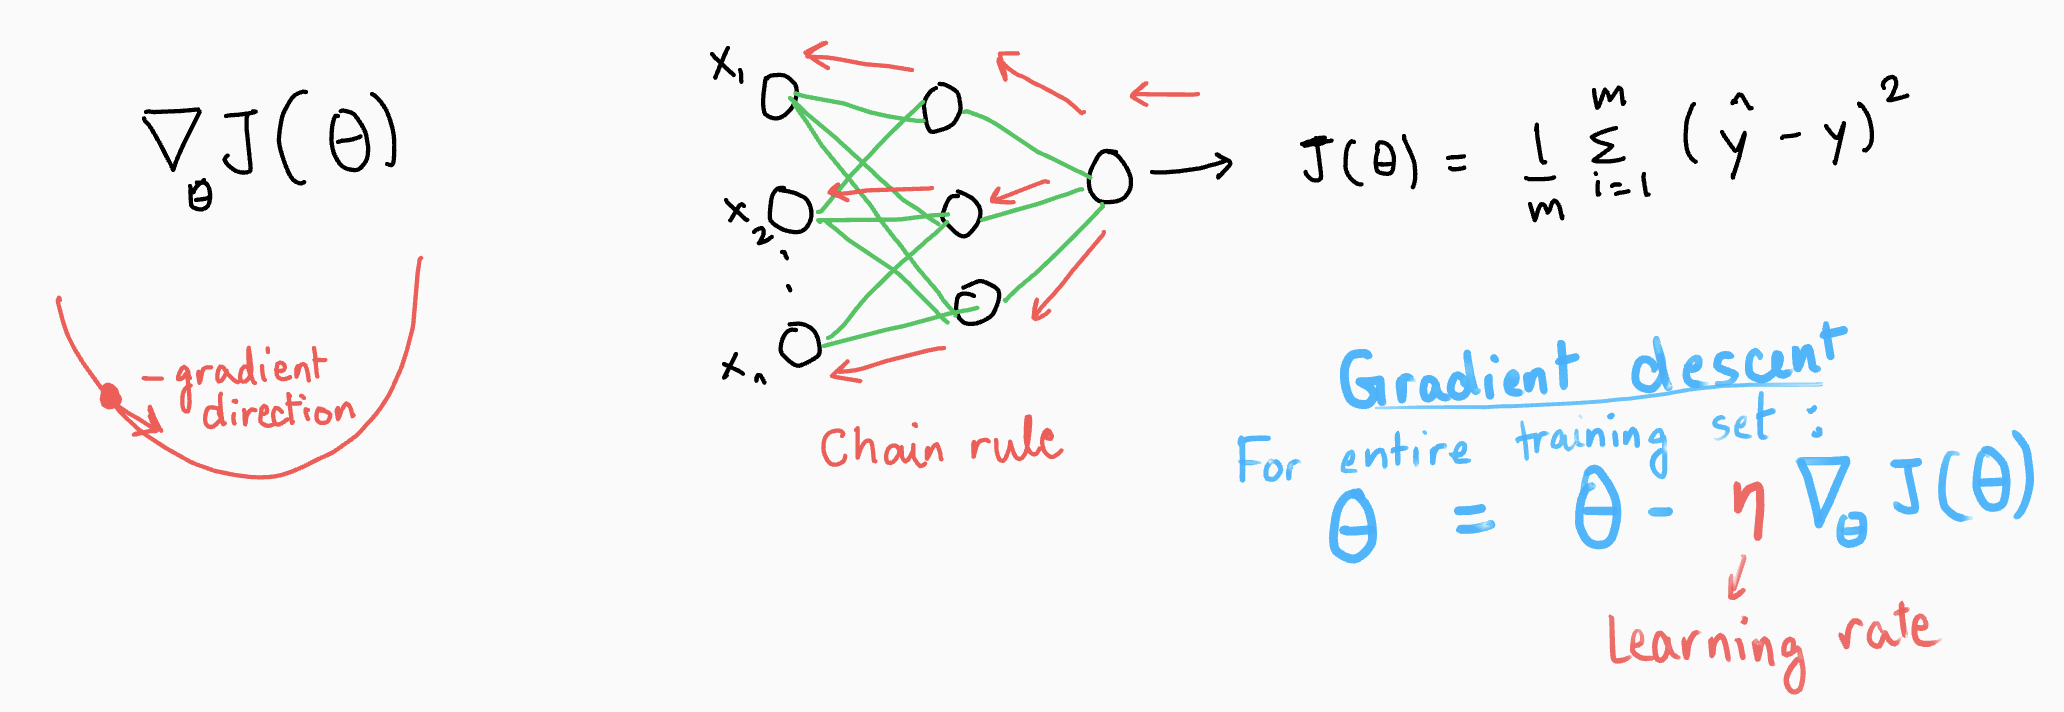 ∇θ J(θ)
- gradient
direction
x₁
x₂
⋮
xₙ
Chain rule
J(θ) = 1/m Σᵢ₌₁ᵐ (ŷ - y)²
Gradient descent
For entire training set :
θ = θ - η ∇θ J(θ)
Learning rate